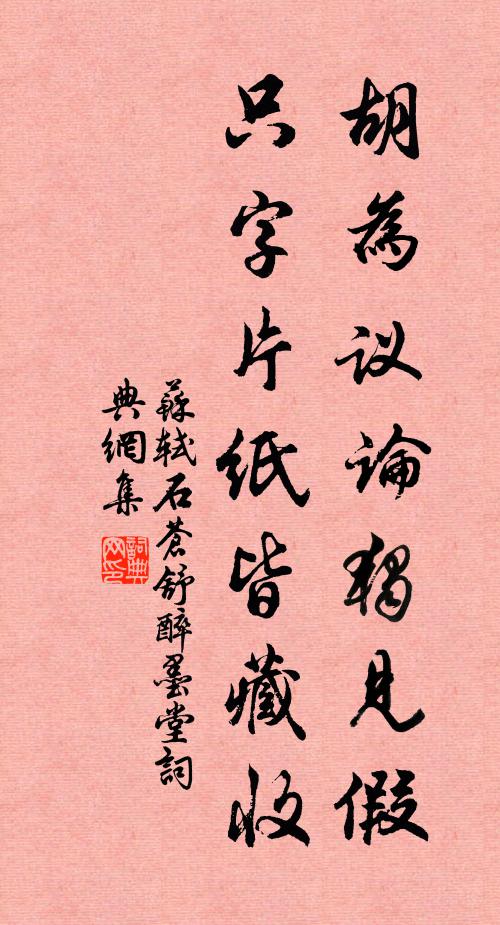 胡為议論獨見假
只字片紙皆藏收
蘇軾石蒼舒醉墨堂詞
典網集
詞典网印